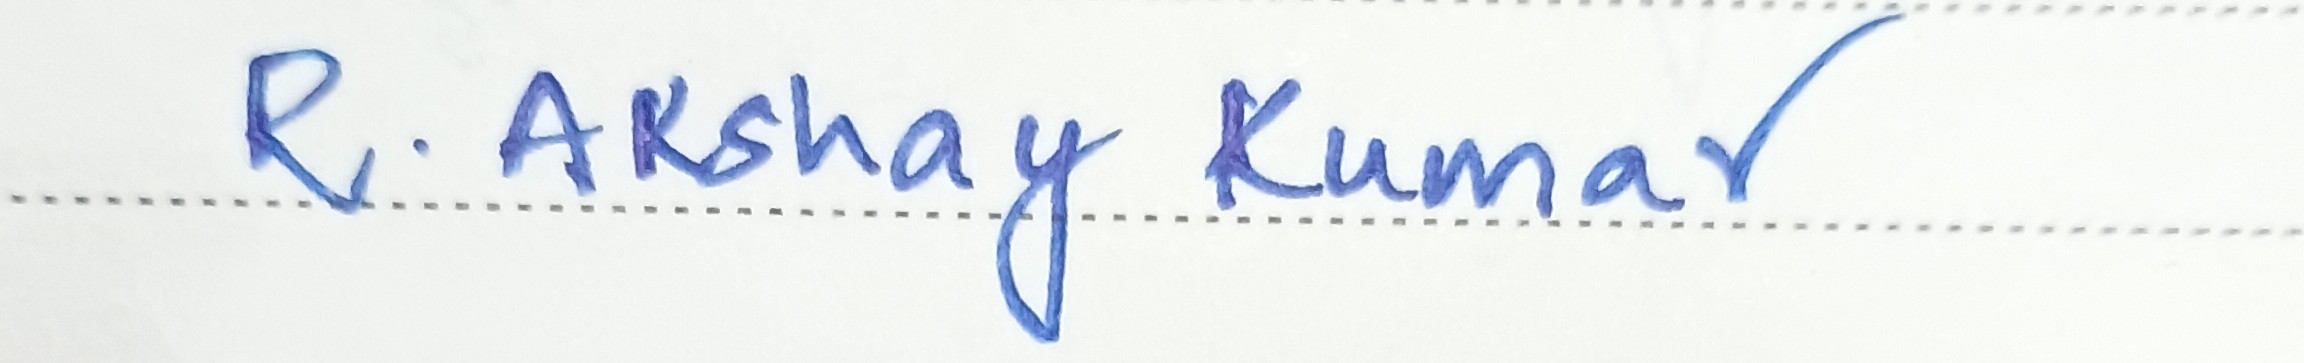 R. Akshay Kumar